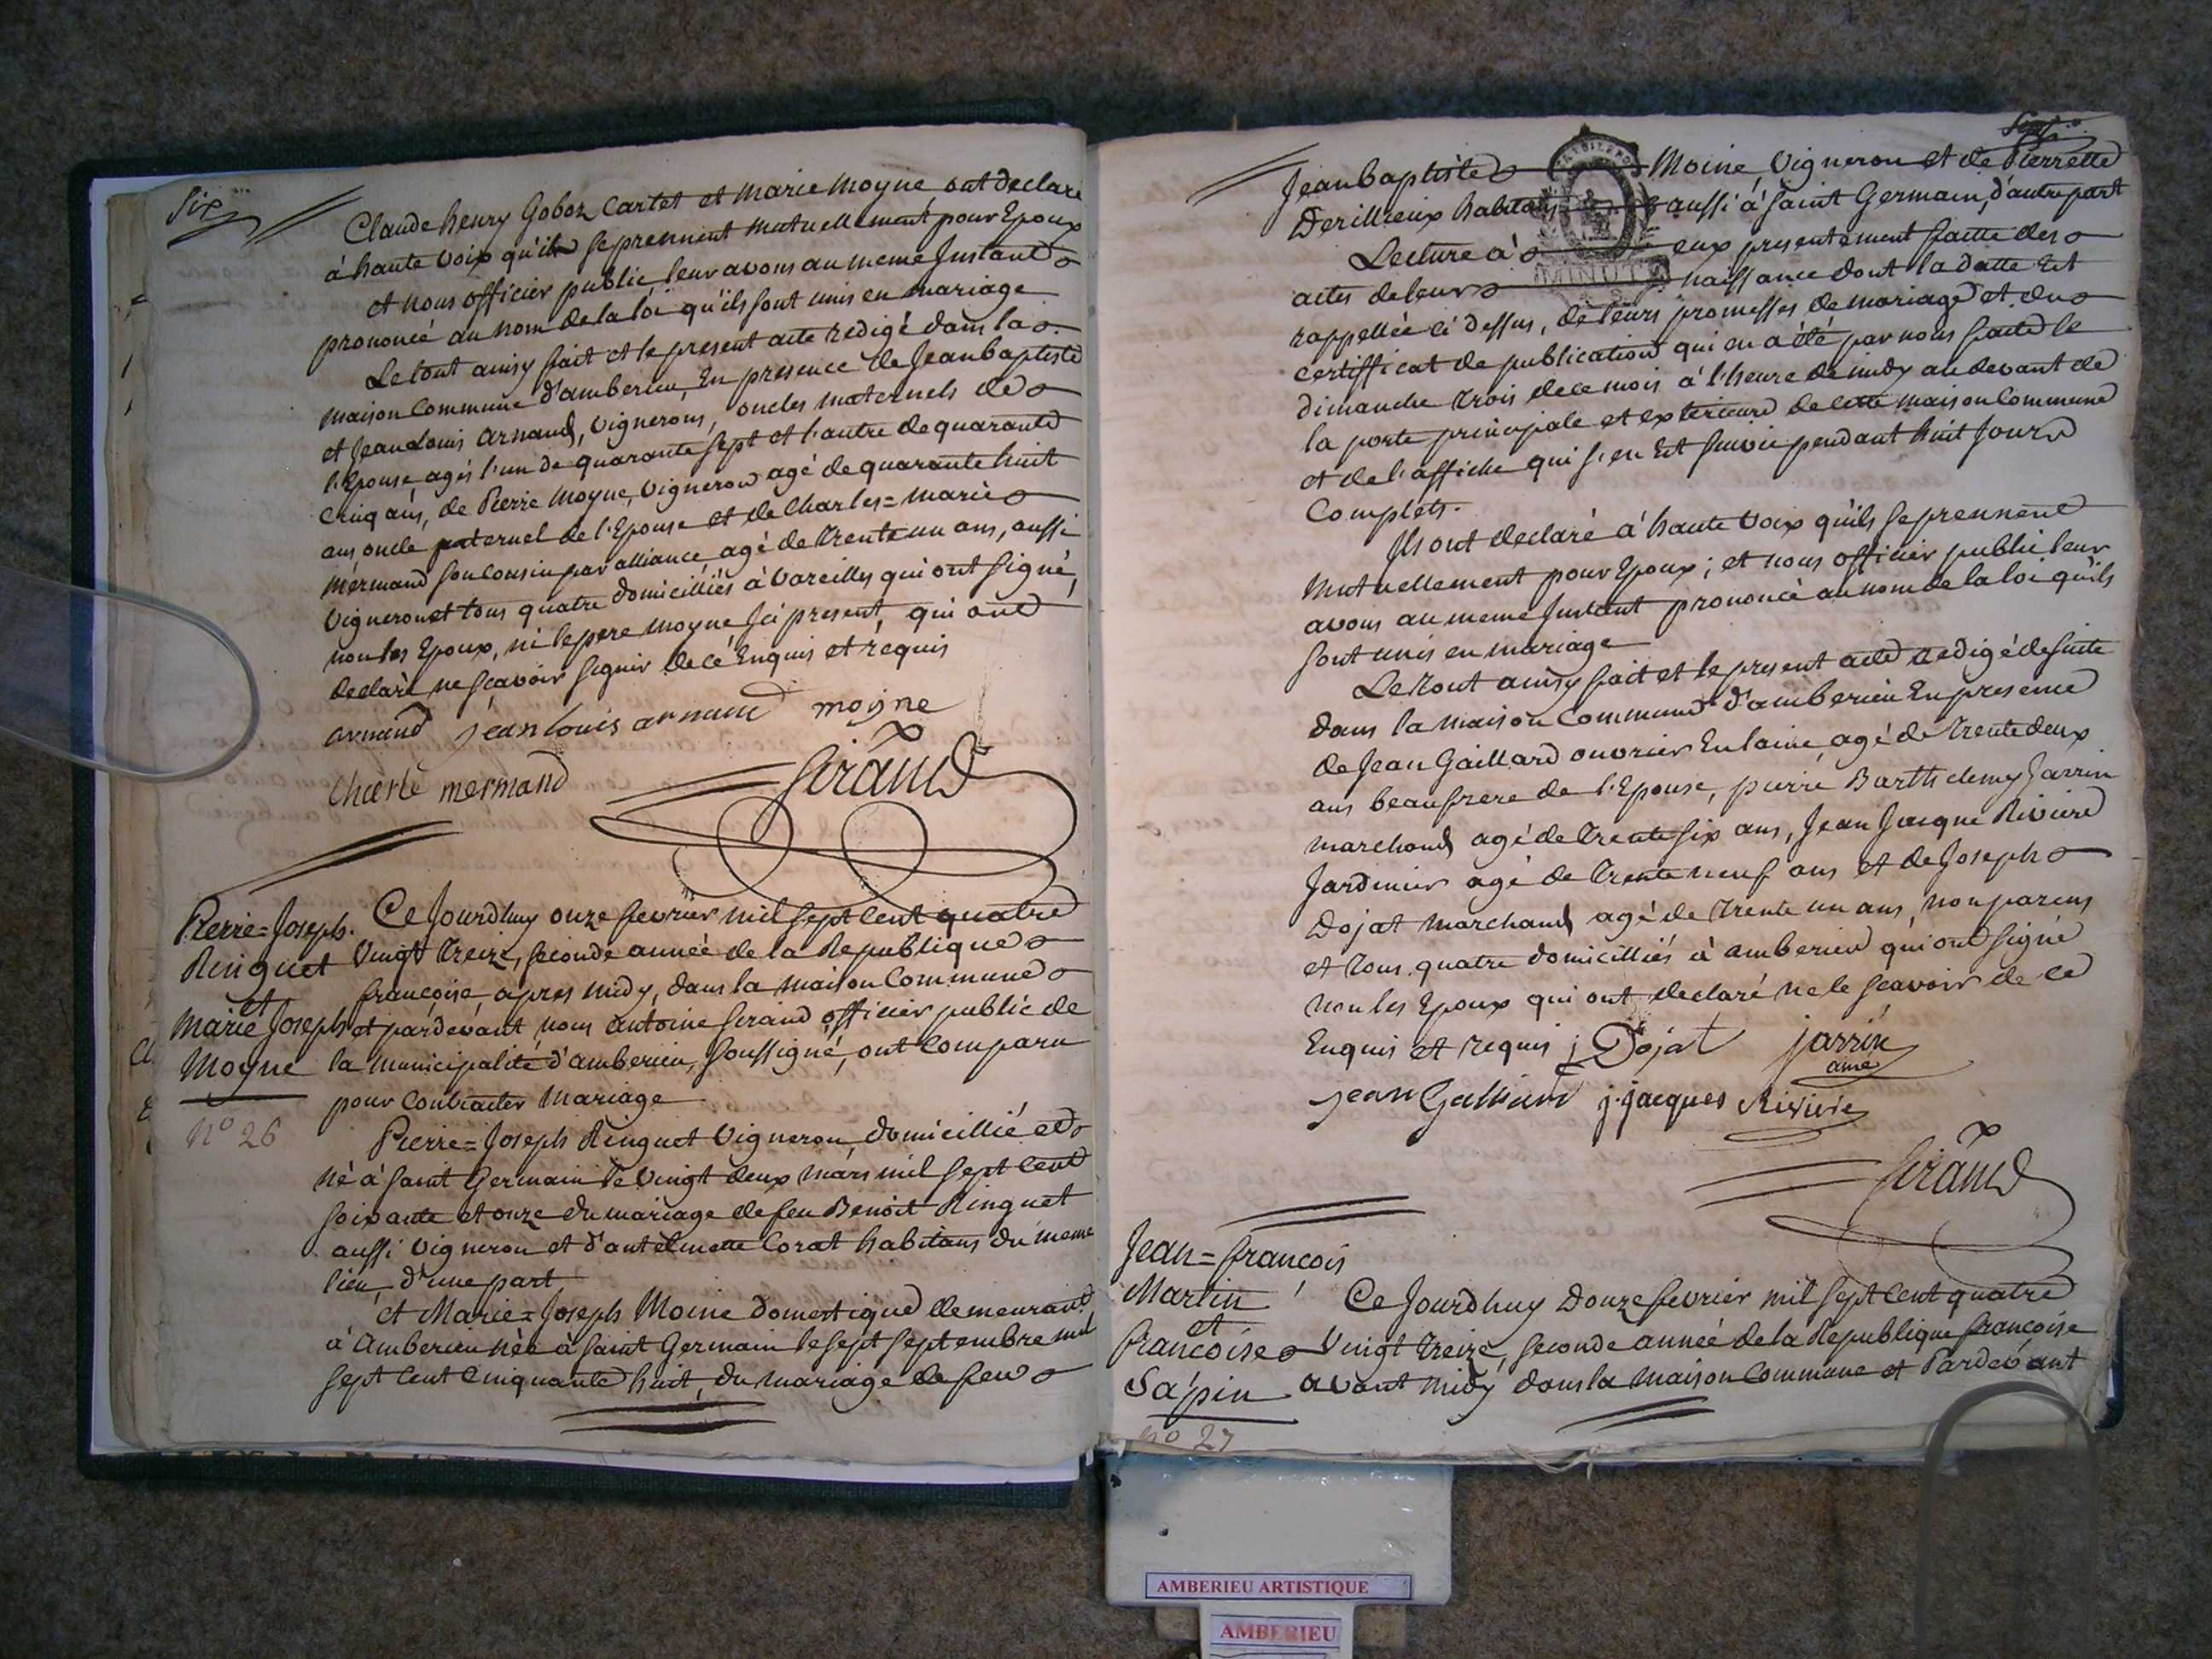 Six
Claude henry Goboz Cartet et Marie Moyne ont declaré
à haute voix qu'ils se prennent mutuellement pour Epoux
et nous officier public leur avons au meme Instant
prononcé au nom de la loi qu'ils sont unis en mariage
Le tout ainsy fait et le present acte redigé dans la
maison Commune d'amberieu, En presence de Jean baptiste
et Jean Louis arnaud, vignerons, oncles maternels de
l'Epouse agés l'un de quarante sept et l'autre de quarante
cinq ans, de Pierre Moyne, Vigneron agé de quarante huit
ans oncle paternel de l'Epouse et de Charles=Marie
Mermand son Cousin par alliance, agé de trente un ans, aussi
Vigneron et tous quatre domicilliés à Vareilles qui ont signé,
non les Epoux, ni le pere Moyne Ici present, qui ont
declaré ne sçavoir signer de ce Enquis et requis
arnaud jean louis arnaud moyne
Charle mermand
Giraud
Pierre=Joseph.
Ringuet
et
Marie Joseph
Moyne
N° 26
Ce Jourdhuy onze fevrier mil sept Cent quatre
Vingt treize, seconde année de la Republique
françoise, apres midy, dans la maison Commune
et pardevant nous antoine Giraud officier public de
la municipalité d'amberieu, soussigné, ont Comparu
pour Contracter Mariage
Pierre=Joseph Ringuet Vigneron, domicillié et
né à saint Germain le vingt deux mars mil sept Cent
soixante et onze du mariage de feu Benoit Ringuet
aussi Vigneron et d'antelmette Corat habitans du meme
lieu, d'une part
et Marie=Joseph Moine domestique demeurant
à Amberieu née à saint Germain le sept septembre mil
sept Cent Cinquante huit, du mariage de feu
Sept
Jean baptiste Moine, Vigneron et de Pierrette
Derillieux habitans aussi à saint Germain, d'autre part
Lecture à eux presentement faitte des
actes de leurs naissance dont la datte Est
rappellée ci dessus, de leurs promesses de mariage et du
certifficat de publication qui en a été par nous faite le
dimanche trois de ce mois à l'heure de midy au devant de
la porte principale et exterieure de cette maison Commune
et de l'affiche qui s'en Est suivie pendant huit Jours
Complets.
Ils ont declaré à haute voix qu'ils se prennent
Mutuellement pour Epoux; et nous officier public leur
avons au meme Instant prononcé au nom de la loi qu'ils
sont unis en mariage
Le tout ainsy fait et le present acte redigé de suite
dans la maison Commune d'amberieu En presence
de Jean Gaillard ouvrier En laine, agé de trente deux
ans beaufrere de l'Epouse, pierre Barthelemy Jarrin
marchand agé de trente six ans, Jean Jacque Riviere
Jardinier agé de trente neuf ans et de Joseph
Dojat marchand agé de trente un ans, non parens
et tous quatre domicilliés à amberieu qui ont signé
non les Epoux qui ont declaré ne le sçavoir de ce
Enquis et requis ; Dojat jarrin
ainé
jean Galliard j. jacques Riviere
Giraud
MINUTE
Jean=françois
Martin
et
françoise
Sapin
N° 27
Ce Jourdhuy Douze fevrier mil sept Cent quatre
Vingt treize, seconde année de la Republique françoise
avant midy dans la maison Commune et Pardevant
AMBERIEU ARTISTIQUE
AMBERIEU